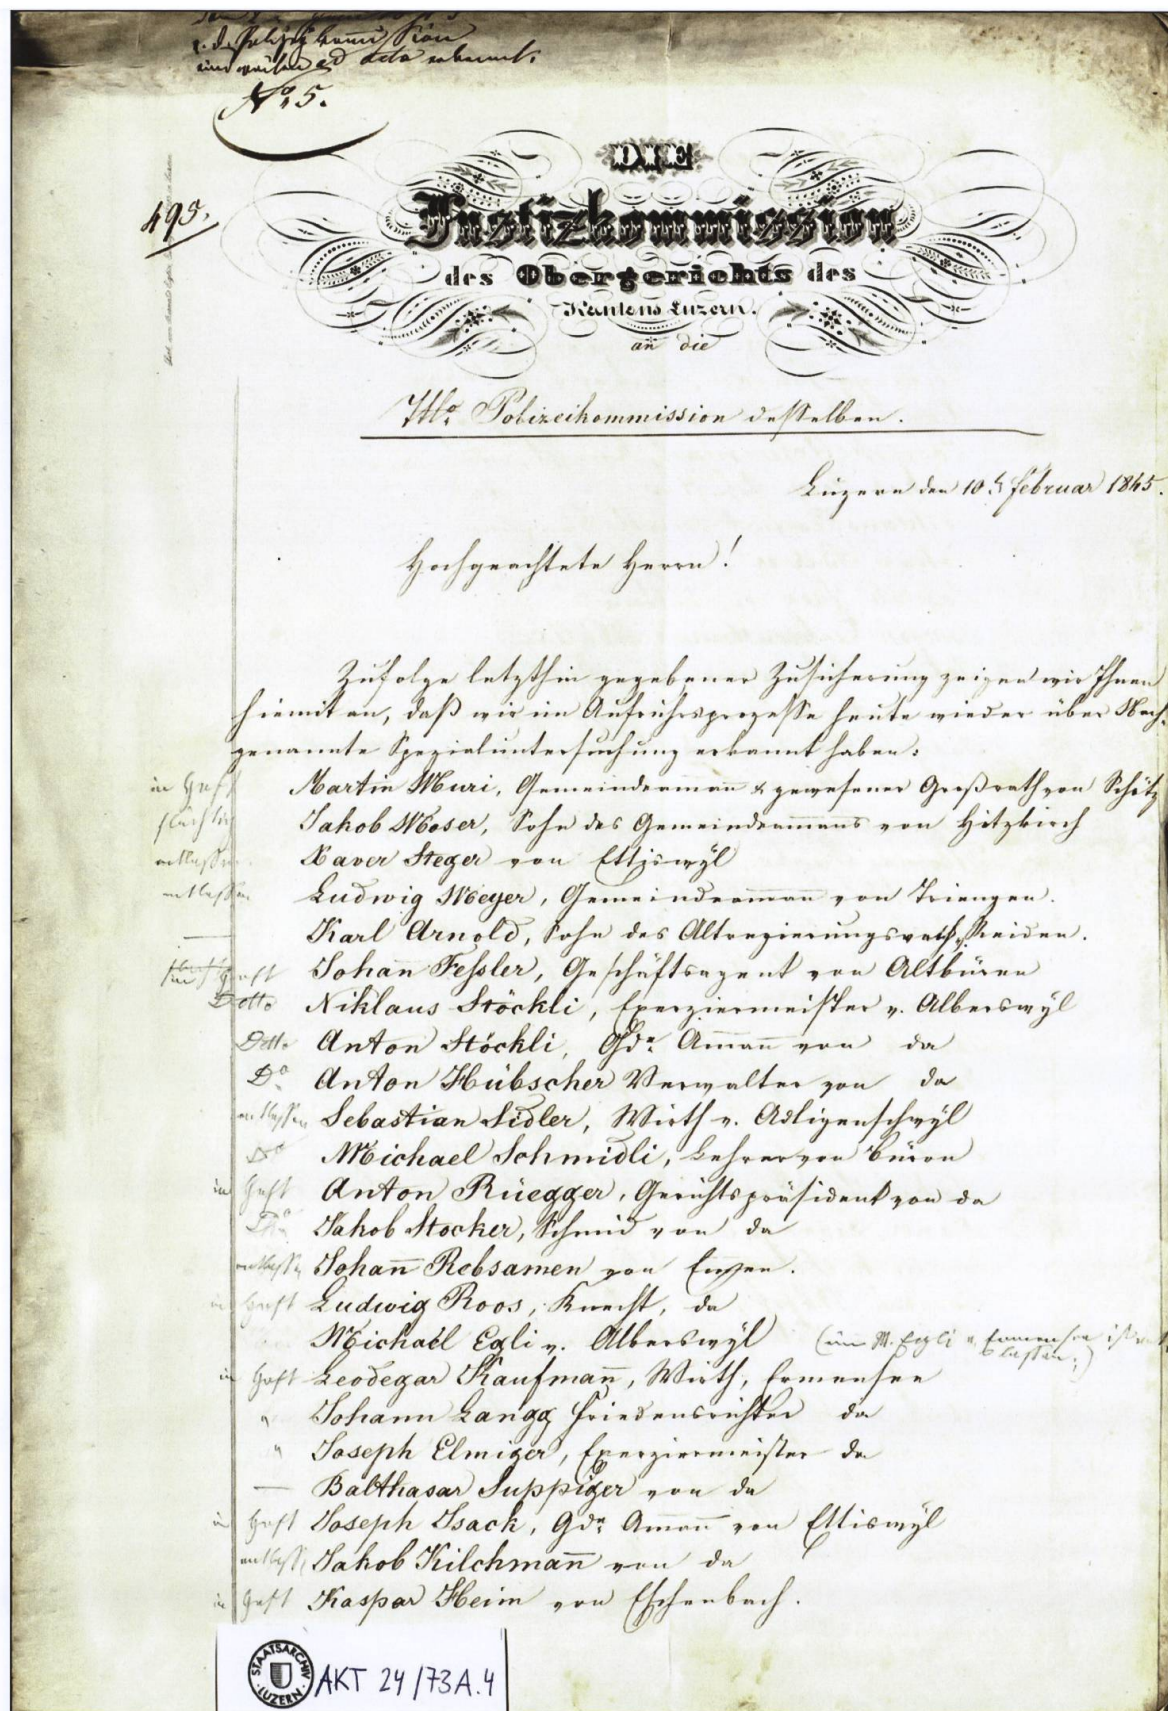 z. d. Polizeikommission
einweilen ad acta erkennt.
No. 5.
495.
DIE
Justizkommission
des Obergerichts des
Kantons Luzern.
an die
Tit. Polizeikommission desselben.
Luzern den 10t. Februar 1845.
Hochgeachtete Herrn!
Zufolge letzthin gegebener Zusicherung zeigen wir Ihnen
hiemit an, daß wir im Aufruhrsprozesse heute wieder über Nach-
genannte Spezialuntersuchung erkannt haben:
in Haft Martin Muri, Gemeindeamann & gewesener Großrath von Schötz
flüchtig Jakob Moser, Sohn des Gemeindeammans von Hitzkirch
entlassen Xaver Steger von Ettiswyl
entlassen Ludwig Meyer, Gemeindeamman von Triengen.
— Karl Arnold, Sohn des Altregierungsrath, Reiden.
in Haft Johann Fessler, Geschäftsagent von Altbüren
Detto Niklaus Stöckli, Exerziermeister v. Alberswyl
Detto Anton Stöckli, Gde. Amann von da
Do. Anton Hübscher Verwalter von da
entlassen Sebastian Sidler, Wirth v. Adligenschwyl
Do Michael Schmidli, Lehrer von Büron
in Haft Anton Rüegger, Gerichtspräsident von da
Do. Jakob Stocker, Schmid von da
entlassen Johann Rebsamen von Emmen.
in Haft Ludwig Roos, Knecht, da
Michael Egli v. Alberswyl (ein M. Egli v. Ermensee ist entlassen.)
in Haft Leodegar Kaufmann, Wirth, Ermensee
" Johann Langg Friedensrichter da
" Joseph Elmiger, Exerziermeister da
— Balthasar Suppiger von da
in Haft Joseph Isack, Gde. Amann von Ettiswyl
entlassen Jakob Kilchmann von da
in Haft Kaspar Heim von Eschenbach.
STAATSARCHIV LUZERN
AKT 24/73A.4